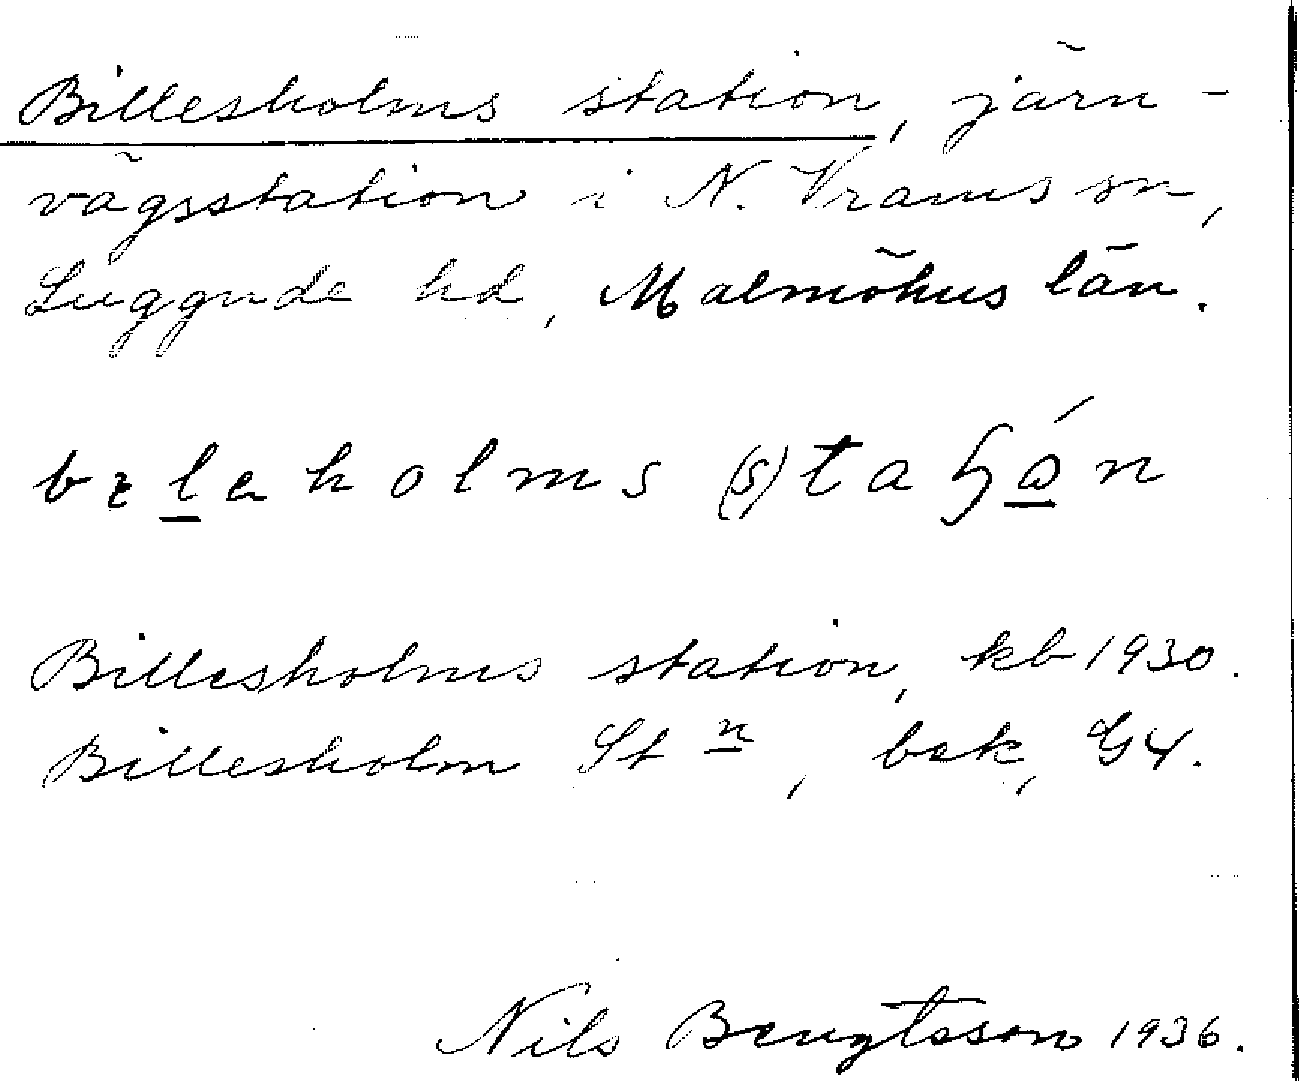 Billesholms station, järn-
vägsstation i N. Vrams sn,
Luggude hd, Malmöhus län.
bɪlaholms (s)taɧón
Billesholms station, kb 1930.
Billesholm Stn, bsk, G4.
Nils Bengtsson 1936.